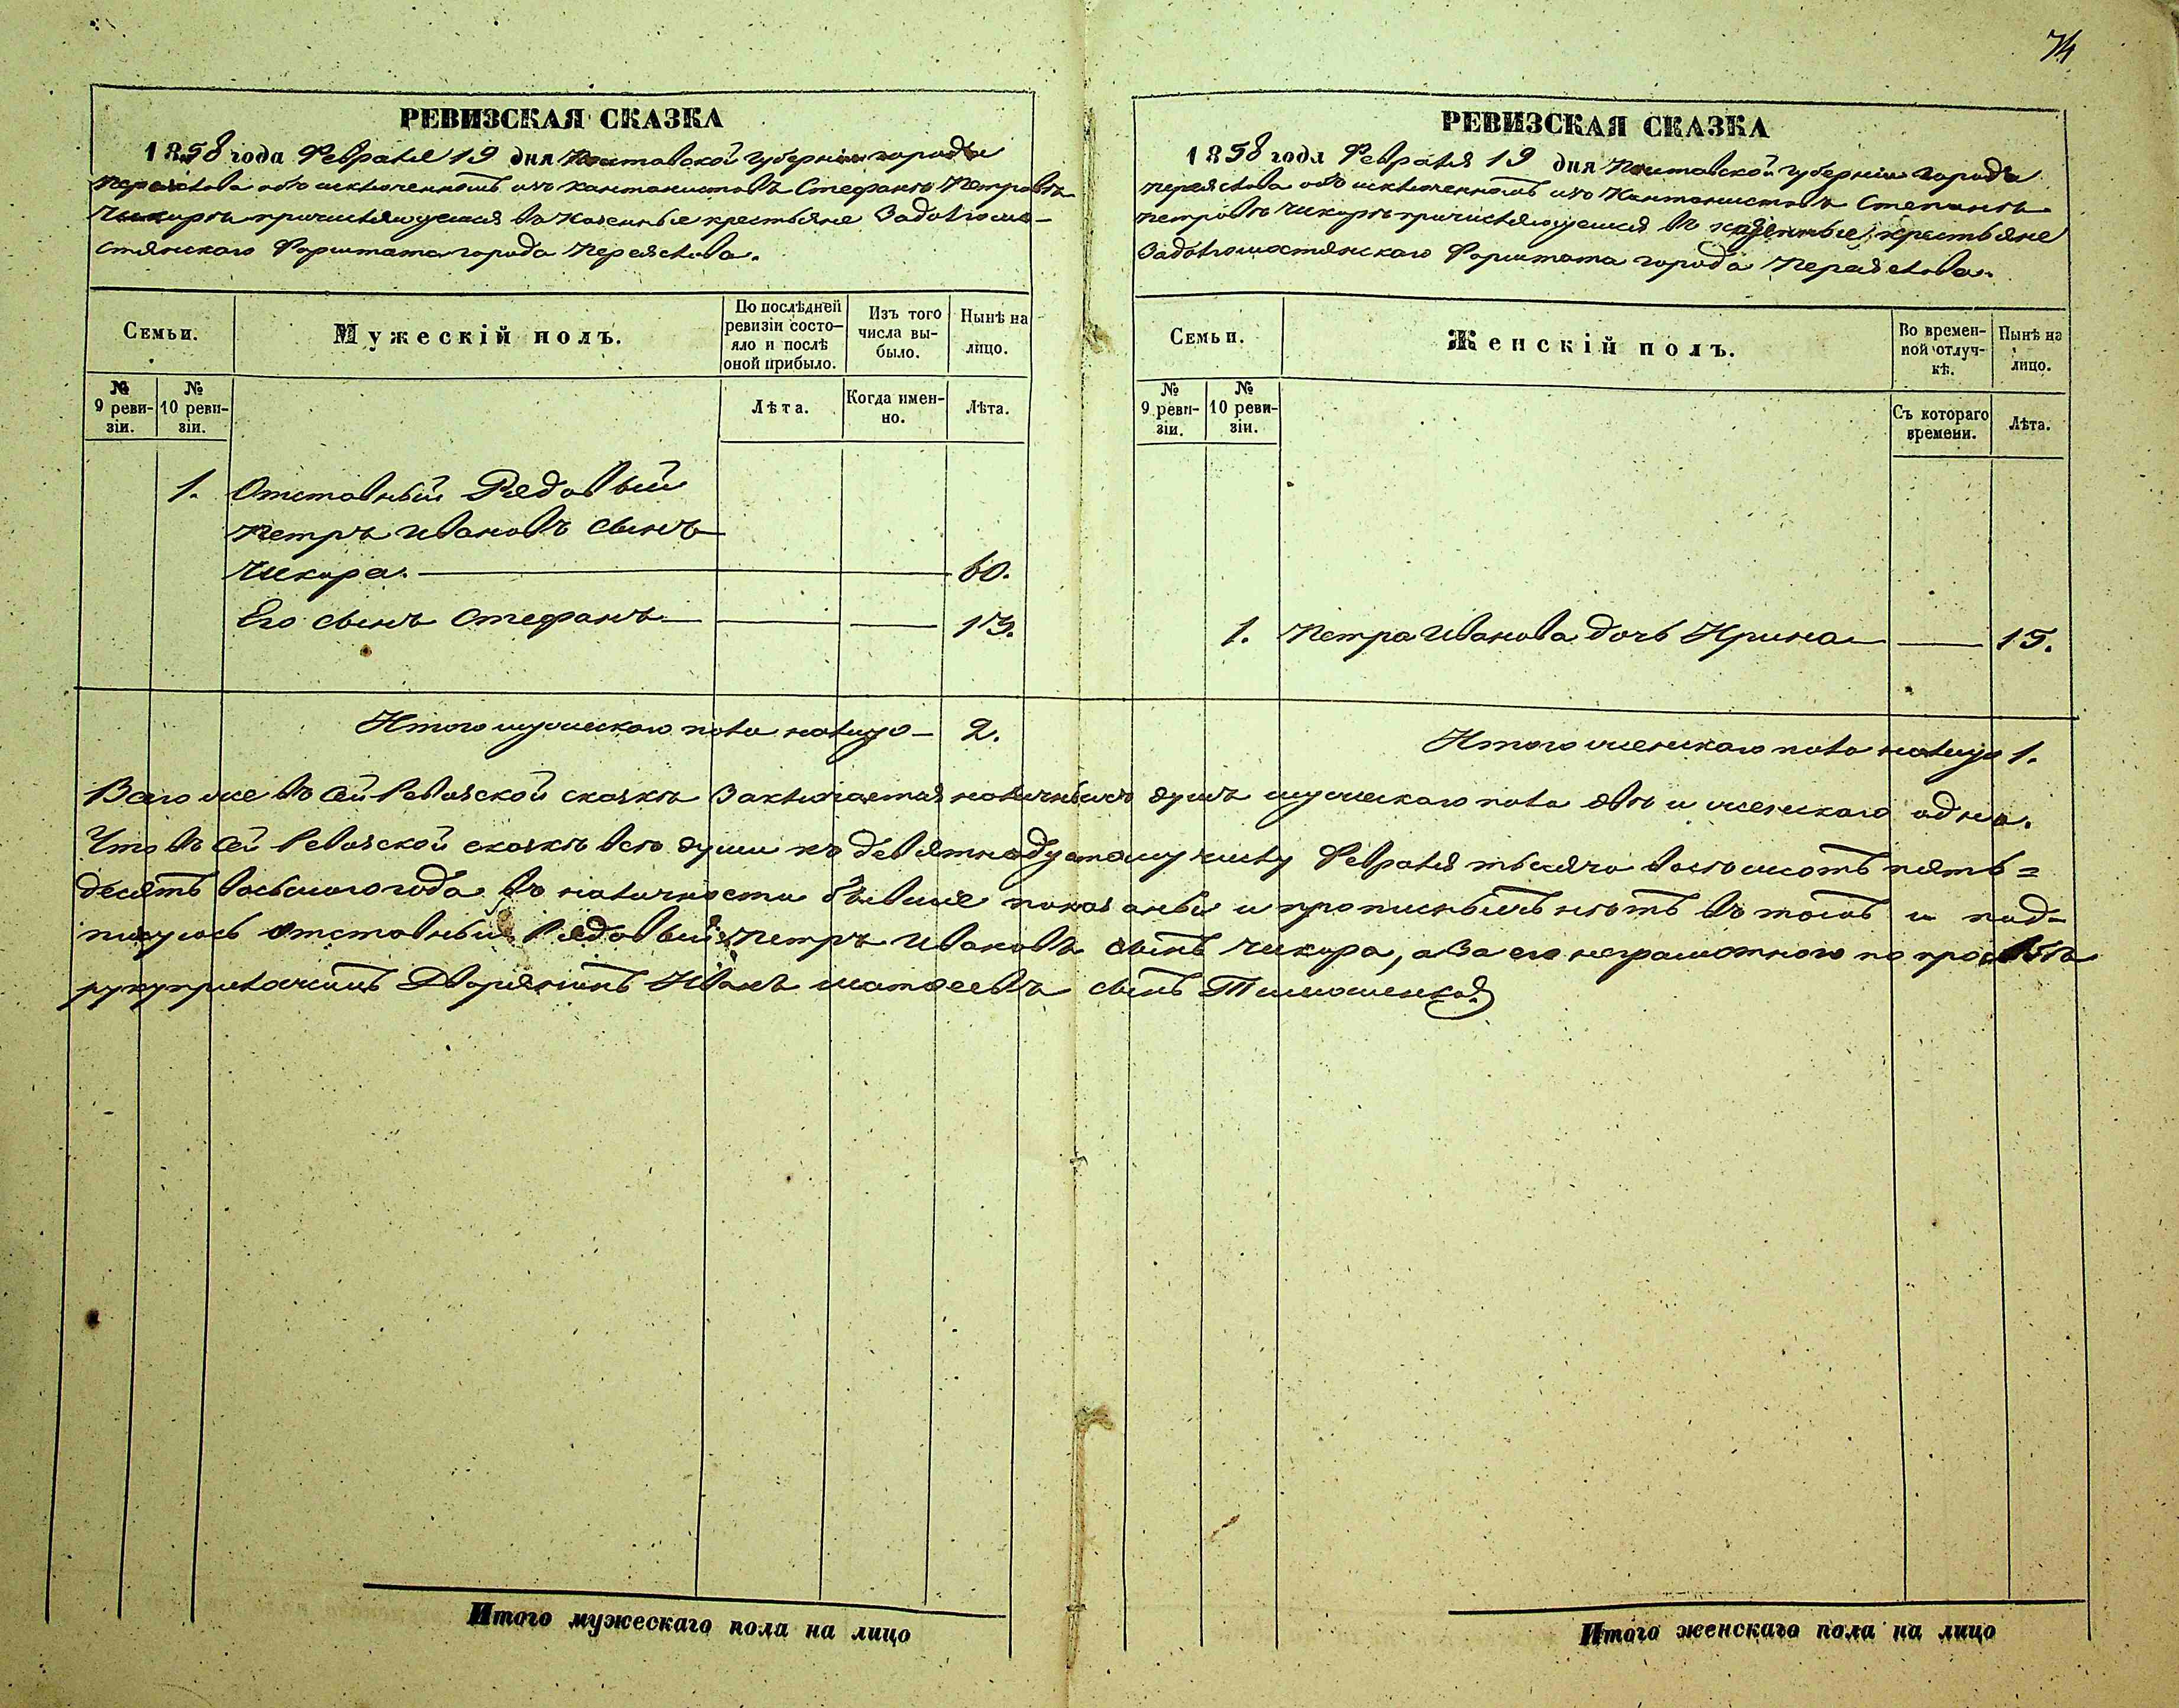 74
РЕВИЗСКАЯ СКАЗКА
1858 года Февраля 19 дня Полтавской губерніи города
Переяслова объ исключенномъ изъ кантонистовъ Стефанѣ Петровѣ
Чикирѣ причисляющемся въ казенные крестьяне Задолгомо-
стянскаго Форштата города Переяслова.
Семьи.
Мужескій полъ.
По послѣдней ревизіи состо-
яло и послѣ оной прибыло.
Изъ того числа вы-
было.
Нынѣ на лицо.
№ 9 реви-
зіи.
№ 10 реви-
зіи.
Лѣта.
Когда имен-
но.
Лѣта.
1. Отставный Рядовый
Петръ Ивановъ сынъ
Чикира. 60.
Его сынъ Стефанъ 13.
Итого мужескаго пола налицо 2.
РЕВИЗСКАЯ СКАЗКА
1858 года Февраля 19 дня Полтавской губерніи города
Переяслова объ исключенномъ изъ Кантонистовъ Степанѣ
Петровѣ Чикирѣ причисляющемся въ казенные крестьяне
Задолгомостянскаго Форштата города Переяслова.
Семьи.
Женскій полъ.
Во времен-
ной отлуч-
кѣ.
Нынѣ на лицо.
№ 9 реви-
зіи.
№ 10 реви-
зіи.
Съ котораго времени.
Лѣта.
1. Петра Иванова дочь Ирина 15.
Итого женскаго пола налицо 1.
Всего же въ сей Ревизской сказкѣ заключается наличныхъ душъ мужескаго пола двѣ и женскаго одна.
Что въ сей Ревизской сказкѣ всѣ души къ девятнадцатому числу Февраля тысяча восемсотъ пять=
десятъ восьмого года въ наличности бывшіе показаны и прописныхъ нѣтъ въ томъ и под-
писуюсь отставный Рядовый Петръ Ивановъ сынъ Чикира, а за его неграмотного по прозьбѣ
руку приложилъ Дворянинъ Иванъ Матвеевъ сынъ Тимошенко
Итого мужескаго пола на лицо
Итого женскаго пола на лицо